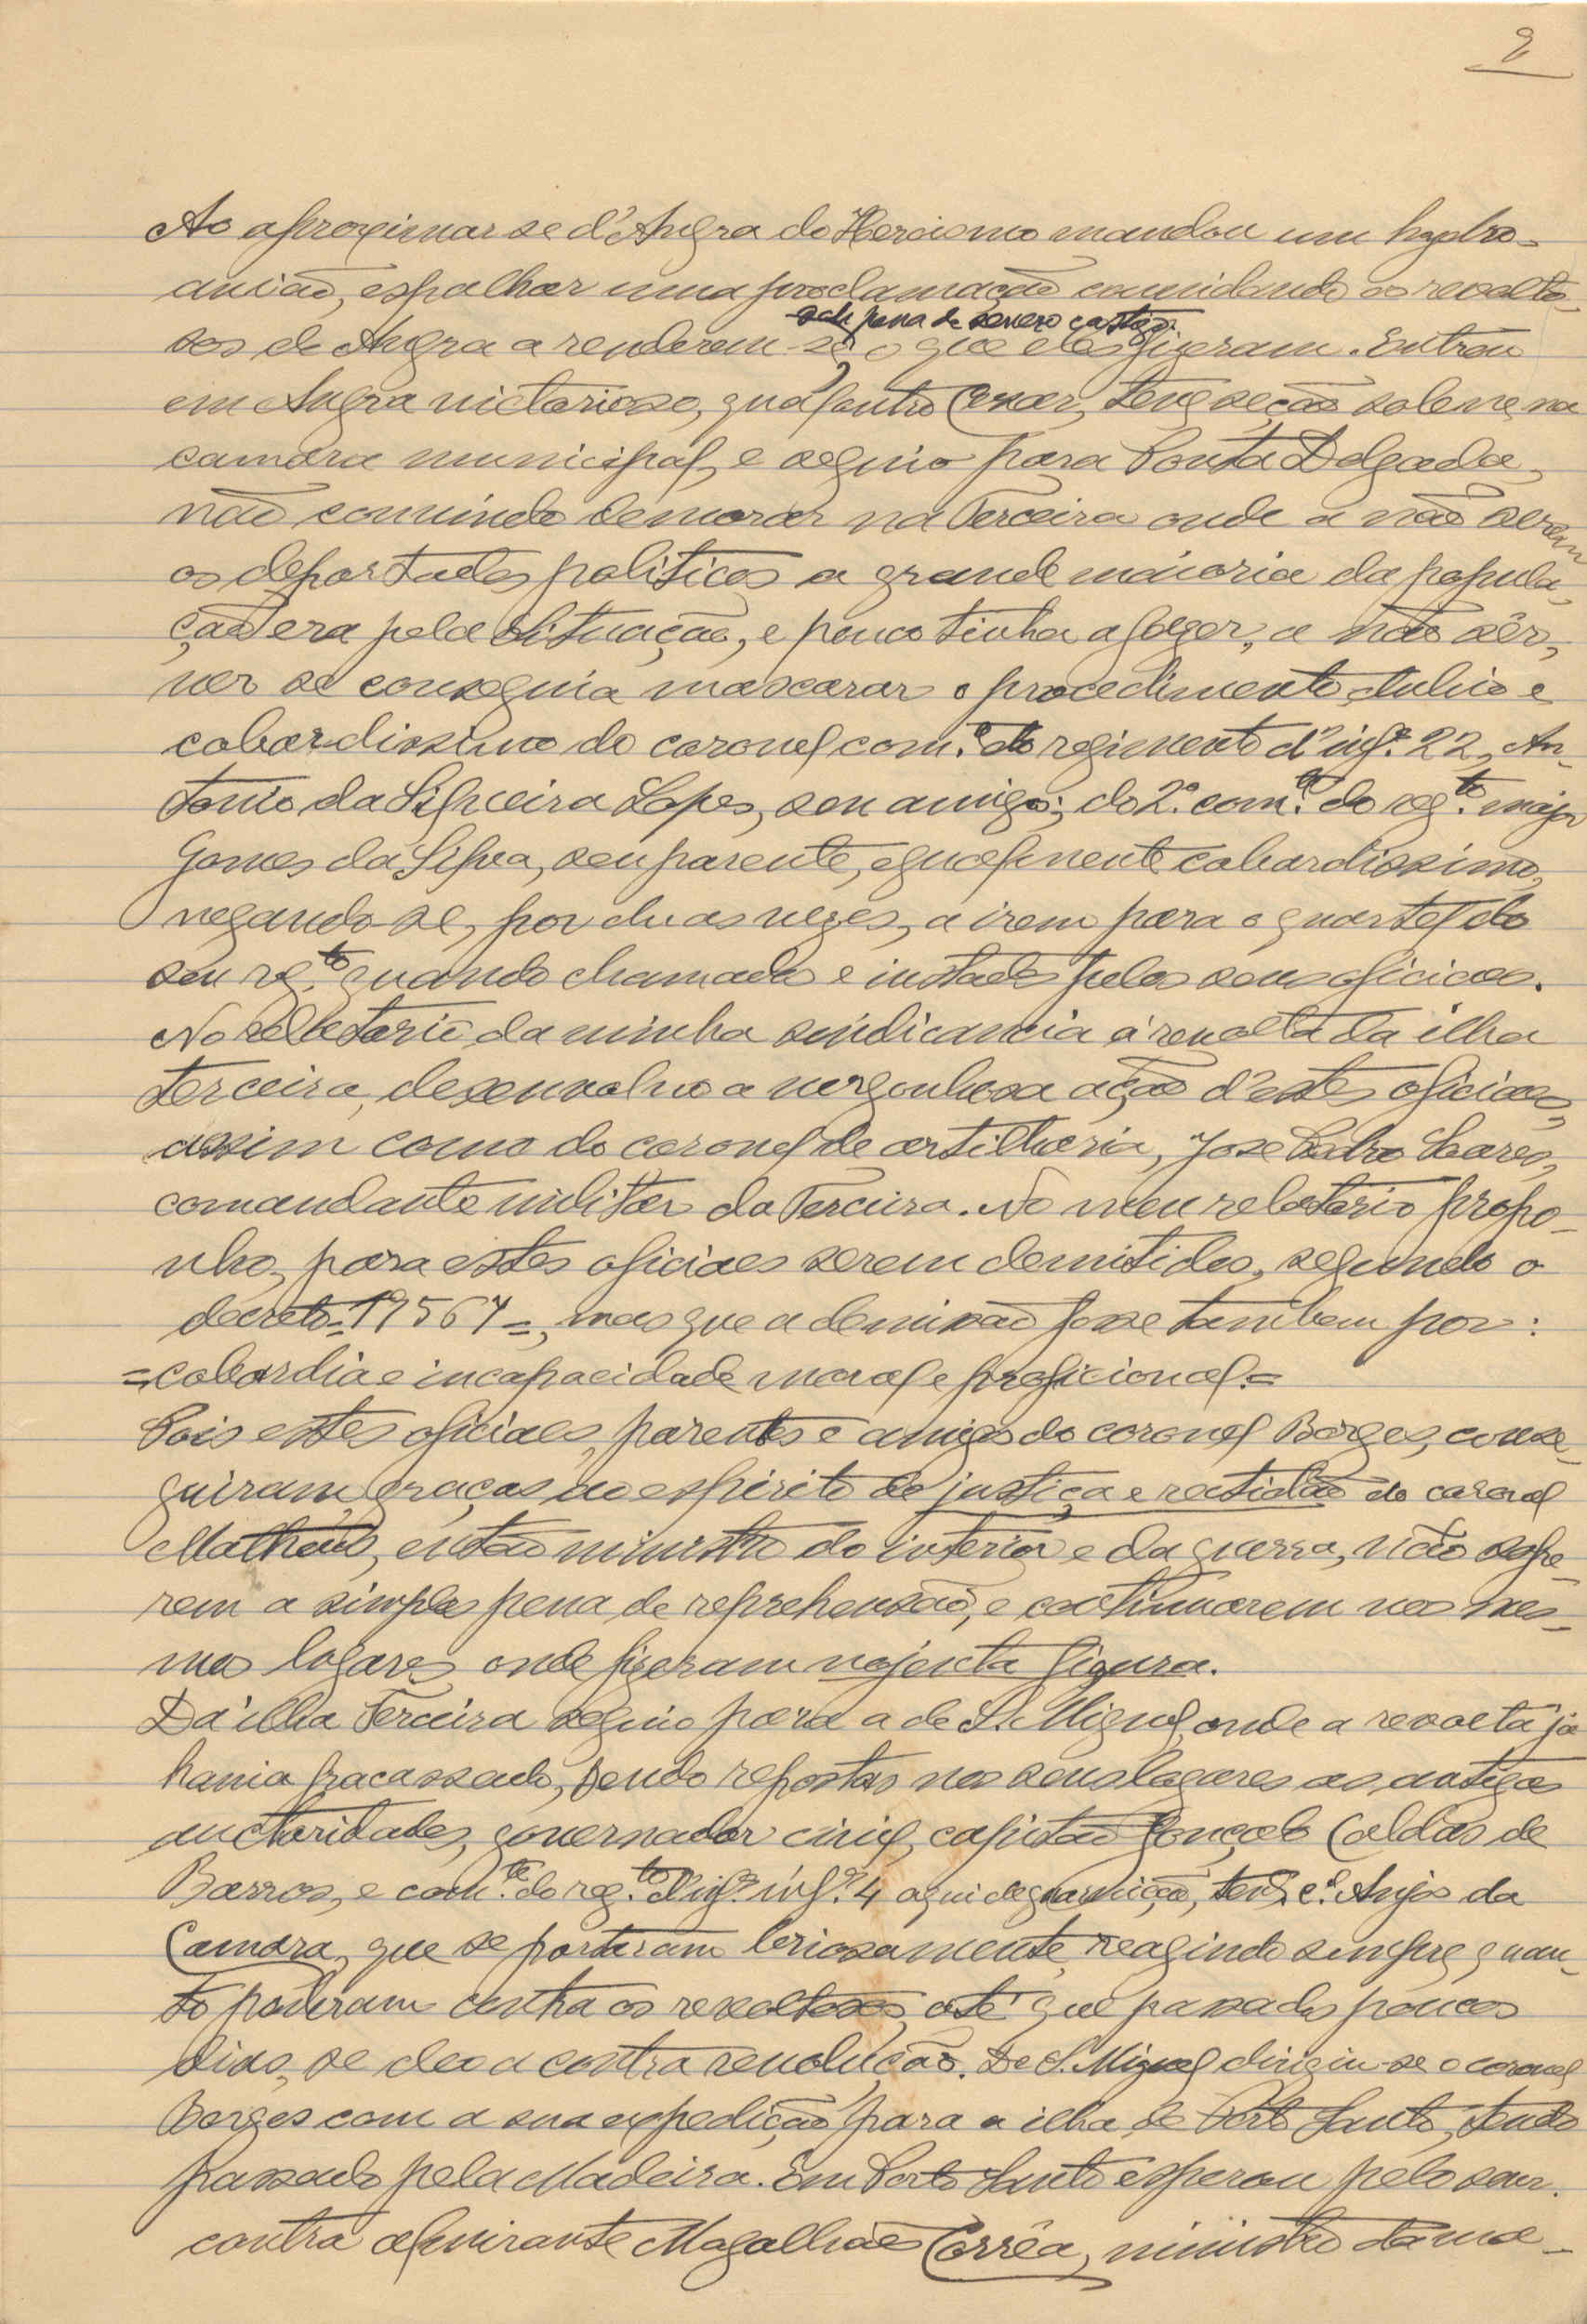 2
Ao aproximar se d'Angra do Heroismo mandou um hydro-
avião, espalhar uma proclamação convidando os revolto-
sob pena de severo castigo
sos de Angra a renderem-se, o que eles fizeram. Entrou
em Angra victorioso, qual outro Cesar, teve seção solene na
camara municipal, e seguio para Ponta Delgada,
não convindo demorar na Terceira onde a não serem
os deportados politicos a grande maioria da popula-
ção era pela situação, e pouco tinha a fazer, a não sêr,
ver se conseguia mascarar o procedimento dubio e
cobardissimo do coronel com.te do regimento d'inf.ª 22, An-
tonio da Silveira Lopes, seu amigo; do 2.º com.te do reg.to major
Gomes da Silva, seu parente, egualmente cobardissimo,
negando-se, por duas vezes, a irem para o quartel do
seu reg.to quando chamados e instados pelos seus oficiaes.
No relatorio da minha sindicancia á revolta da ilha
Terceira, desenvolvo a vergonhosa ação d'estes oficiaes,
assim como do coronel de artilharia, José Pedro Soares,
comandante militar da Terceira. No meu relatorio propo-
nho, para estes oficiaes serem demitidos, segundo o
decreto=19567=, mas que a demissão fosse tambem por:
=cobardia e incapacidade moral e proficional.=
Pois estes oficiaes, parentes e amigos do coronel Borges, conse-
guiram graças ao espirito de justiça e rectidão do coronel
Matheus, então ministro do interior e da guerra, não sofre-
rem a simples pena de reprehensão, e continuarem nos mes-
mos logares onde fizeram nojenta figura.
Da ilha Terceira seguio para a de S. Miguel, onde a revolta já
havia fracassado, sendo repostas nos seus logares as antigas
auctoridades, governador civil, capitão Gonçalo Caldas de
Barros, e com.te do reg.to d'inf.ª inf.ª 4 aqui de guarnição, ten.e c.el Anjos da
Camara, que se portaram briosamente, reagindo sempre quan-
to poderam contra os revoltosos, até que passados poucos
dias, se deo a contra revolução. De S. Miguel dirigiu-se o coronel
Borges com a sua expedição para a ilha de Porto Santo, tendo
passado pela Madeira. Em Porto Santo esperou pelo snr.
contra almirante Magalhães Corrêa, ministro da ma-